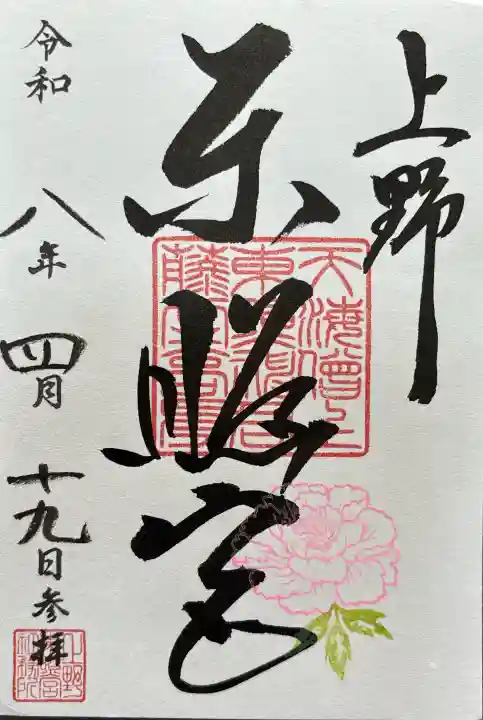 上野
東照宮
天海僧正
東照大権現
藤堂高虎
令和八年四月十九日参拝
上野東照宮社務所